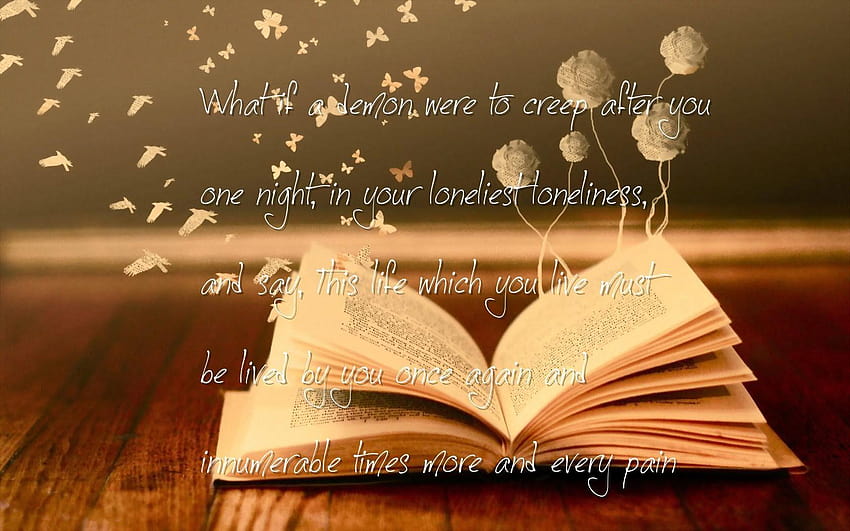 What if a demon were to creep after you
one night, in your loneliest loneliness,
and say, This life which you live must
be lived by you once again and
innumerable times more and every pain